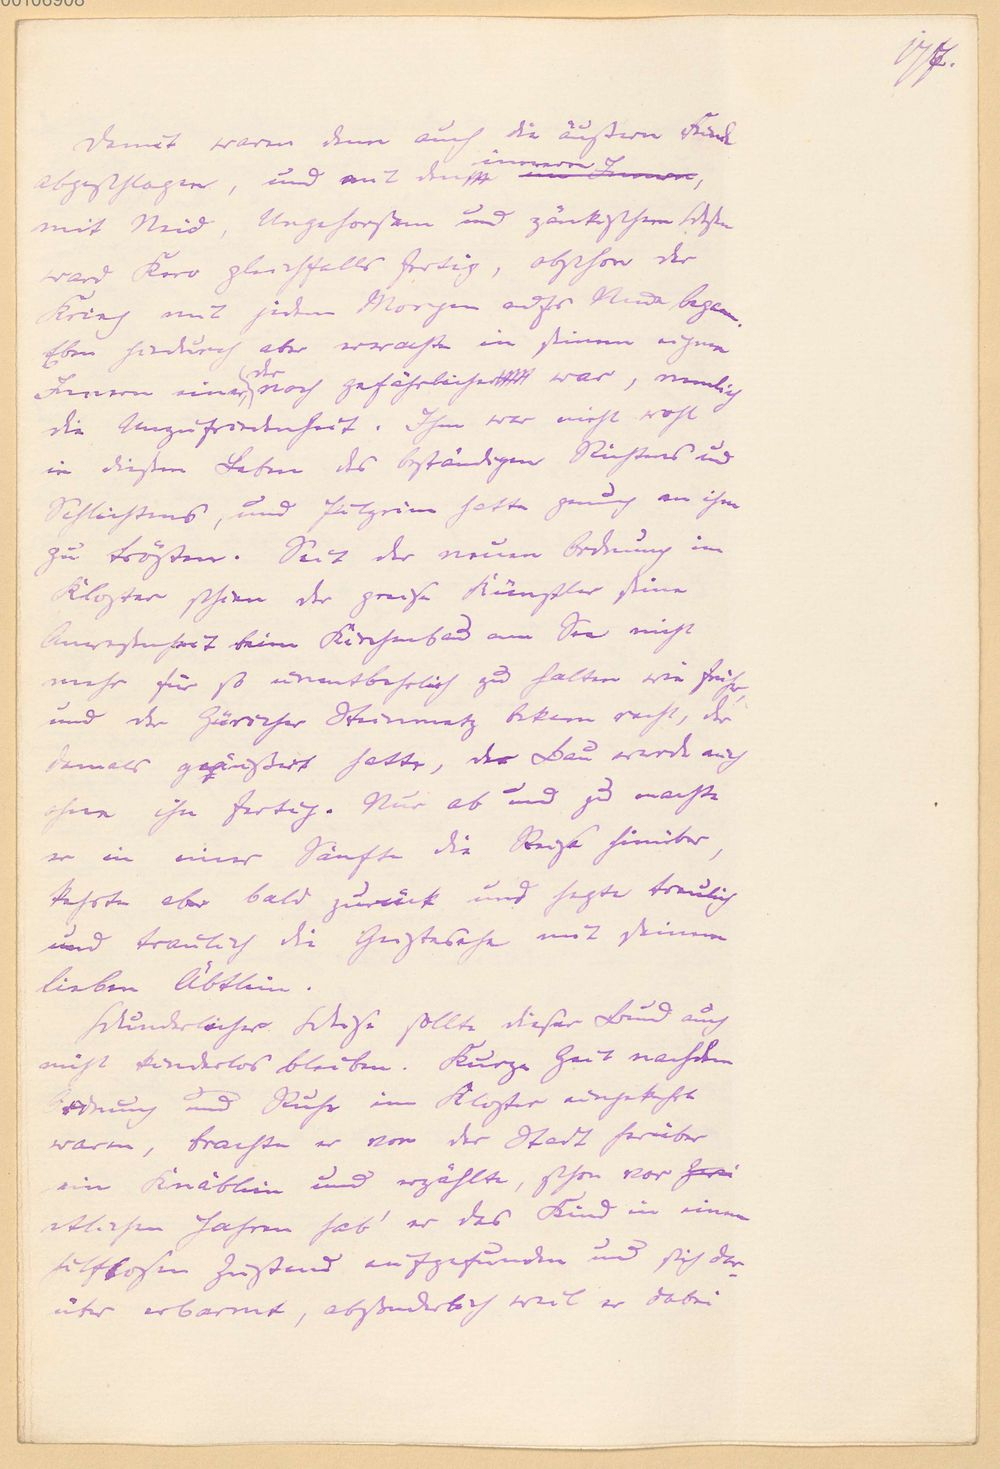 00106908
177.
Damit waren denn auch die äußern Feinde
abgeschlagen, und mit den innern ~~im Innern~~,
mit Neid, Ungehorsam und zänkischem Wesen
ward Kero gleichfalls fertig, obschon der
Krieg mit jedem Morgen aufs Neue begann.
Eben hiedurch aber erwachte in seinem eignen
Innern einer, der noch gefährlicher war, nemlich
die Unzufriedenheit. Ihm war nicht wohl
in diesem Leben des beständigen Richtens und
Schlichtens, und Pilgrim hatte genug an ihm
zu trösten. Seit der neuen Ordnung im
Kloster schien der greise Künstler seine
Anwesenheit beim Kirchenbau am See nicht
mehr für so unentbehrlich zu halten wie früher,
und der Züricher Steinmetz bekam recht, der
damals geäußert hatte, der Bau werde auch
ohne ihn fertig. Nur ab und zu machte
er in einer Sänfte die Reise hinüber,
kehrte aber bald zurück und hegte treulich
und traulich die Geistesehe mit seinem
lieben Äbtlein.
Wunderlicher Weise sollte dieser Bund auch
nicht kinderlos bleiben. Kurze Zeit nachdem
Ordnung und Ruhe im Kloster eingekehrt
waren, brachte er von der Stadt herüber
ein Knäblein und erzählte, schon vor ~~zwei~~
etlichen Jahren hab' er das Kind in einem
hilflosen Zustand aufgefunden und sich dar-
über erbarmt, absonderlich weil er dabei